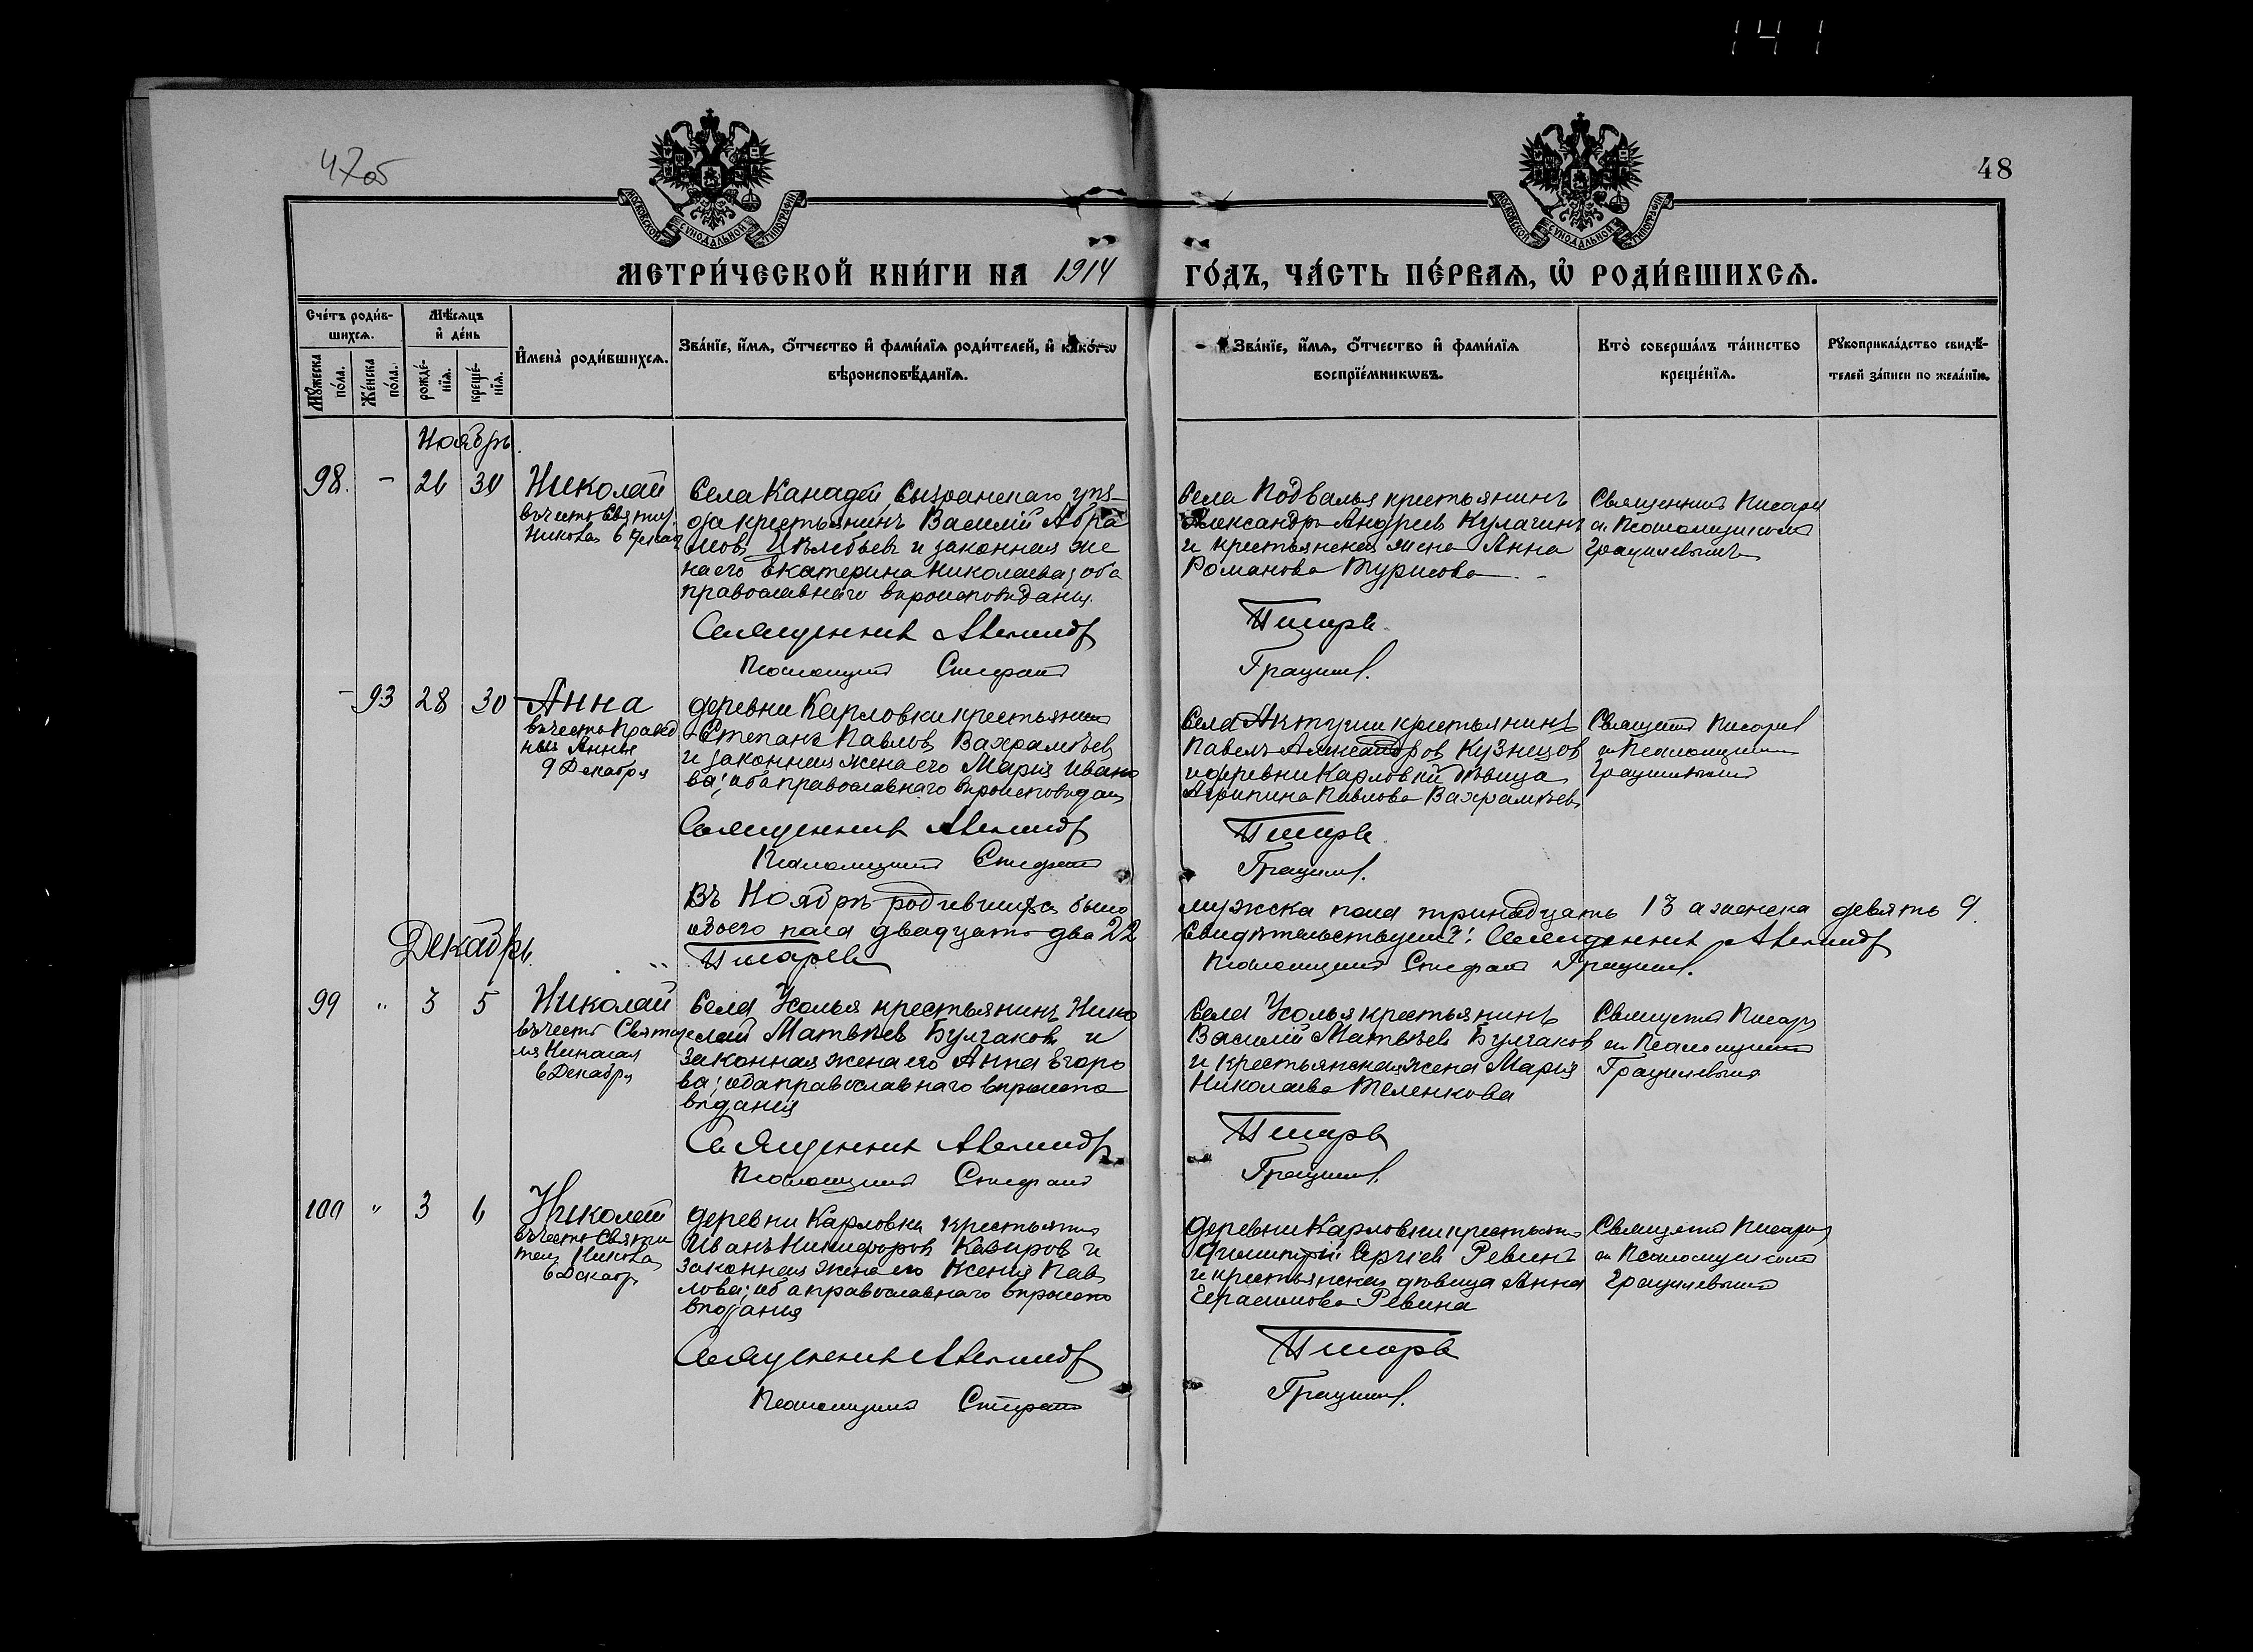 141
47об
48
МОСКОВСКОЙ СѴНОДАЛЬНОЙ ТИПОГРАФІИ
МОСКОВСКОЙ СѴНОДАЛЬНОЙ ТИПОГРАФІИ
МЕТРИ́ЧЕСКОЙ КНИ́ГИ НА 1914 ГО́ДЪ, ЧА́СТЬ ПЕ́РВАѦ, Ѡ҆ РОДИ́ВШИХСѦ.
Сче́тъ роди́в-
шихсѧ.
Мѣ́сѧцъ
и҆ де́нь
Мꙋ́жеска по́ла.
Же́нска по́ла.
рожде́-
нїѧ.
креще́-
нїѧ.
И҆мена̀ роди́вшихсѧ.
Зва́нїе, и҆́мѧ, ѻ҆́тчество и҆ фами́лїѧ роди́телей, и҆ како́гѡ
вѣроисповѣ́данїѧ.
Зва́нїе, и҆́мѧ, ѻ҆́тчество и҆ фами́лїѧ
воспрїе́мникѡвъ.
Кто̀ соверша́лъ та́инство
креще́нїѧ.
Рꙋкоприкла́дство свидѣ́-
телей за́писи по жела́нїю.
Ноябрь.
98. - 26 30 Николай
въ честь Святит.
Николая 6 Декаб
Села Канадей Сызранскаго уѣз-
да крестьянинъ Василій Абра
мовъ и законная же
на его Екатерина Николаева; оба
православнаго вѣроисповѣданія.
Священникъ Александръ
Псаломщикъ Стефанъ
Села Подвалья крестьянинъ
Александръ Андреев Кулагинъ
и крестьянская жена Анна
Романова Турисова. -
Писаревъ
Грацилевъ.
Священникъ Писаревъ
съ Псаломщикомъ
Грацилевымъ
- 93 28 30 Анна
въ честь Правед
ныя Анны
9 Декабря
деревни Карловки крестьянинъ
Степанъ Павлов Вахрамѣевъ
и законная жена его Марія Ивано
ва; оба православнаго вѣроисповѣдан
Священникъ Александръ
Псаломщикъ Стефанъ
Села Актуши крестьянинъ
Павелъ Александров Кузнецов
и деревни Карловки дѣвица
Агрипина Павлова Вахрамѣева
Писаревъ
Грацилевъ.
Священникъ Писаревъ
съ Псаломщикомъ
Грацилевымъ
Въ Ноябрѣ родившихся было мужска пола тринадцать 13 а женска девять 9.
обоего пола двадцать два 22 Свидѣтельствуемъ: Священникъ Александръ
Писаревъ Псаломщикъ Стефанъ Грацилевъ.
Декабрь.
99 " 3 5 Николай
въ честь Святите
ля Николая
6 Декабря
Села Усолья крестьянинъ Нико
лай Матвѣев Булгаковъ и
законная жена его Анна Егоро
ва; оба православнаго вѣроиспо
вѣданія
Священникъ Александръ
Псаломщикъ Стефанъ
Села Усолья крестьянинъ
Василій Матвѣев Булгаков
и крестьянская жена Марія
Николаева Теленкова
Писаревъ
Грацилевъ.
Священникъ Писаревъ
съ Псаломщикомъ
Грацилевымъ
100 " 3 6 Николай
въ честь Святи
теля Никола
6 Декабр
деревни Карловки крестьянинъ
Иванъ Никифоров Казиров и
законная жена его Ксенія Пав
лова; оба православнаго вѣроиспо
вѣданія
Священникъ Александръ
Псаломщикъ Стефанъ
деревни Карловки крестьянинъ
Димитрій Сергіев Ревинъ
и крестьянская дѣвица Анна
Герасимова Ревина
Писаревъ
Грацилевъ.
Священникъ Писаревъ
съ Псаломщикомъ
Грацилевымъ